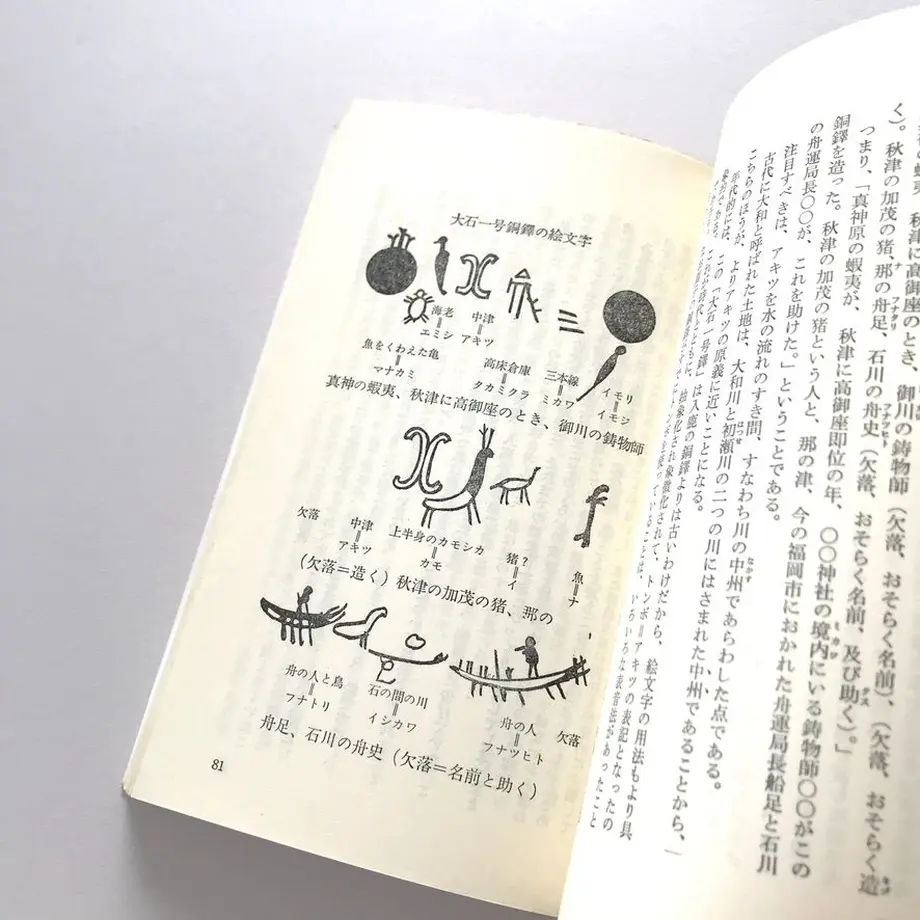 の蝦夷、秋津に高御座のとき、御川の鋳物師（欠落、おそらく名前）、（欠落、おそらく造
く）。秋津の加茂の猪、那の舟足、石川の舟史（欠落、おそらく名前、及び助く）。」
つまり、「真神原の蝦夷が、秋津に高御座即位の年、〇〇神社の境内にいる鋳物師〇〇がこの
銅鐸を造った。秋津の加茂の猪という人と、那の津、今の福岡市におかれた舟運局長船足と石川
の舟運局長〇〇が、これを助けた。」ということである。
注目すべきは、アキツを水の流れのすき間、すなわち川の中州であらわした点である。
古代に大和と呼ばれた土地は、大和川と初瀬川の二つの川にはさまれた中州であることから、
こちらのほうが、よりアキツの原義に近いことになる。
年代的には、この「大石一号鐸」は入鹿の銅鐸よりは古いわけだから、絵文字の用法もより具
抽象化され象徴化されて、トンボ＝アキツの表記となったの
ていることは、いろいろな表音法があったこと
大石一号銅鐸の絵文字
海老＝エミシ
中津＝アキツ
魚をくわえた亀＝マナカミ
高床倉庫＝タカミクラ
三本線＝ミカワ
イモリ＝イモジ
真神の蝦夷、秋津に高御座のとき、御川の鋳物師
欠落
中津＝アキツ
上半身のカモシカ＝カモ
猪？＝イ
魚＝ナ
（欠落＝造く）秋津の加茂の猪、那の
舟の人と鳥＝フナトリ
石の間の川＝イシカワ
舟の人＝フナツヒト
欠落
舟足、石川の舟史（欠落＝名前と助く）
81